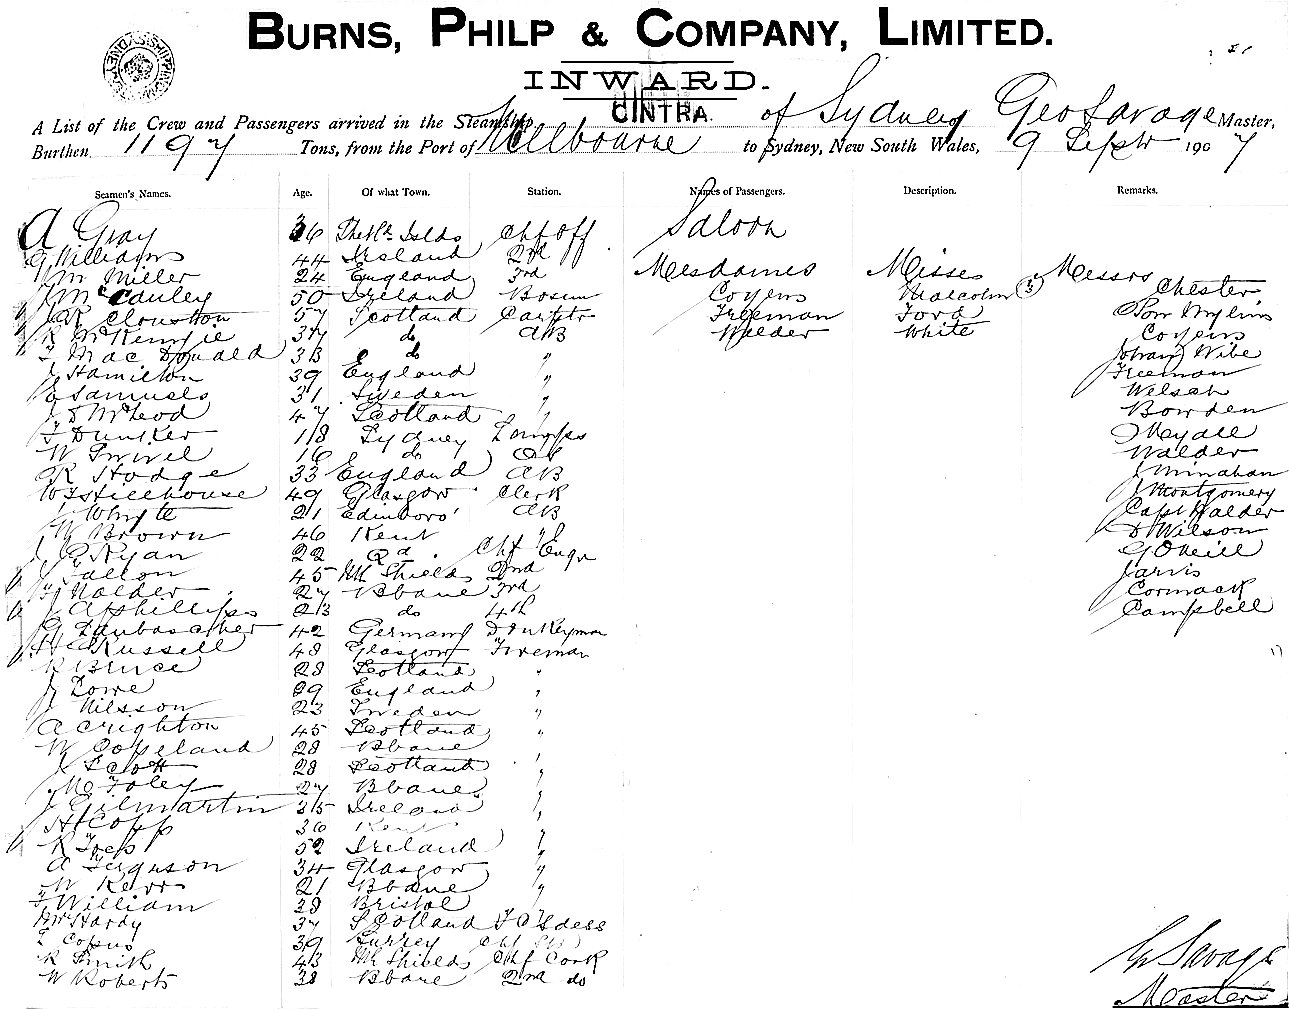 BURNS, PHILP & COMPANY, LIMITED.
INWARD.
CINTRA.
A List of the Crew and Passengers arrived in the Steamship of Sydney Geo Savage Master,
Burthen 1197 Tons, from the Port of Melbourne to Sydney, New South Wales, 9 Septr 1907
Seamen's Names. Age. Of what Town. Station. Names of Passengers. Description. Remarks.
Saloon
Mesdames Misses Messrs
Coyens Malcolm Chester
Freeman Ford
Walder White Coyens
A Gray 36 Islds Chf Off
Williams 44 Ireland 2nd
Wm Miller 24 England 3rd
J McCauley 50 Ireland Bosun
J R Clouston 57 Scotland Carptr
R McKenzie 37 do AB
MacDonald 33 do "
J Hamilton 39 England "
Samuels 31 Sweden "
J D McLeod 47 Scotland "
Dunker 18 Sydney Lamps
W 16 do
R Hodge 33 England AB
Hillhouse 49 Glasgow Clerk
Whyte 21 Edinboro' AB
W Brown 46 Kent "
Ryan 22 Qd.
J Fallon 45 Nth Shields 2nd
Walder 27 Bbane 3rd
J A Phillips 23 do 4th
42 Germany Donkeyman
H C Russell 48 Glasgow Fireman
R Bruce 28 Scotland "
J Lowe 29 England "
J Nilsson 23 Sweden "
A Crighton 45 Scotland "
W Copeland 28 Bbane "
J Scott 28 Scotland "
M Foley 27 Bbane "
J Gilmartin 35 Ireland "
H Copp 36 Kent "
R 52 Ireland "
A Ferguson 34 Glasgow "
W Kerr 21 Bbane "
William 38 Bristol "
Hardy 37 Scotland
39 Surrey
R Smith 43 Nth Shields Chf Cook
W Roberts 38 Bbane 2nd do
Freeman
Welsah
Bowden
Walder
J Minahan
J Montgomery
Capt Walder
D Wilson
G ONeill
Jarvis
Cormack
Campbell
G Savage
Master